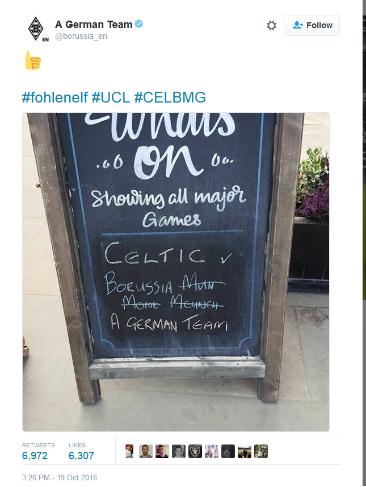 A German Team
@borussia_en
Follow
EN
#fohlenelf #UCL #CELBMG
Whats
on
Showing all major
Games
CELTIC v
BORUSSIA MUN
MONE MEUNCH
A GERMAN TEAM
RETWEETS
LIKES
6,972
6,307
3:26 PM - 19 Oct 2016